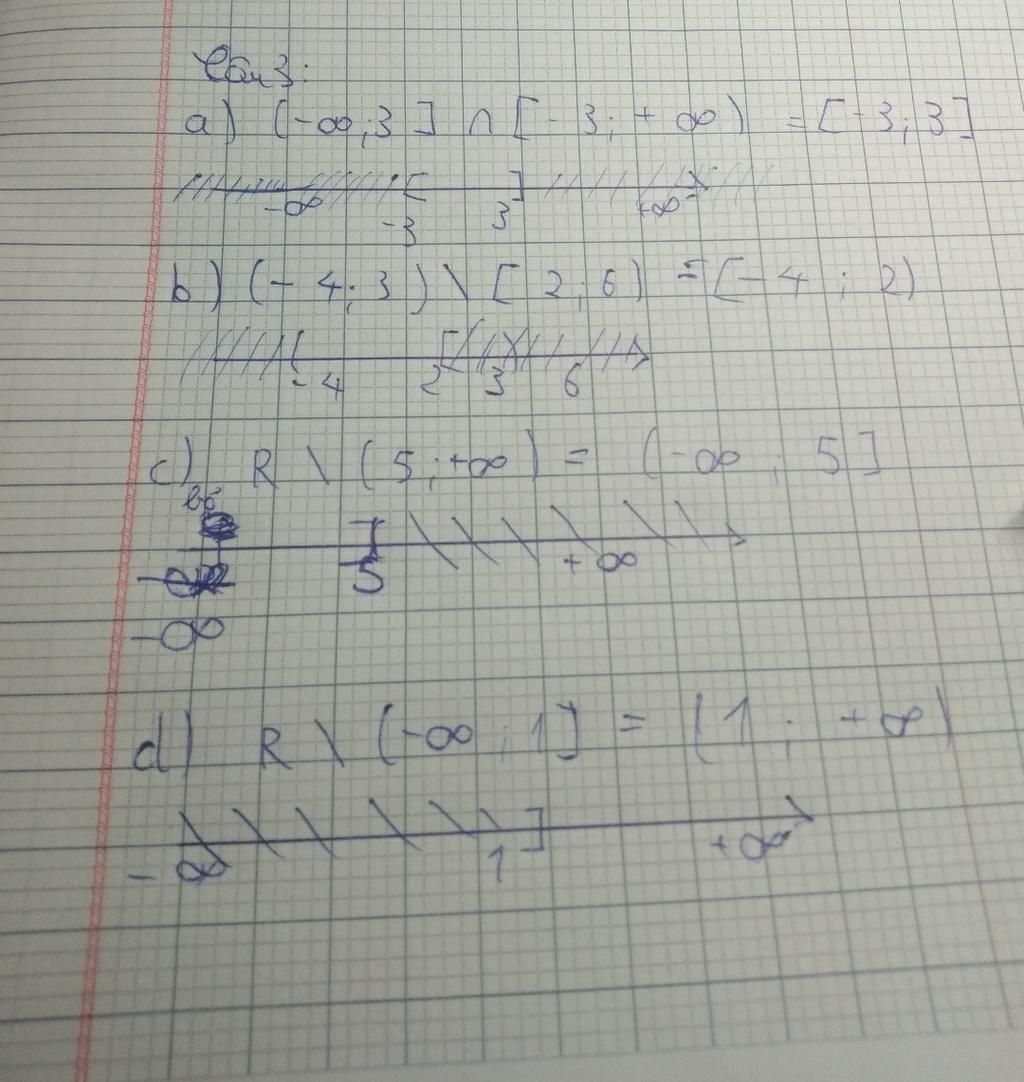 Câu 3:
a) (-∞;3] ∩ [-3;+∞) = [-3;3]
-∞ -3 3 +∞
b) (-4;3) \ [2;6) = [-4;2)
-4 2 3 6
c) R \ (5;+∞) = (-∞;5]
5 +∞
-∞
d) R \ (-∞;1] = (1;+∞)
-∞ 1 +∞